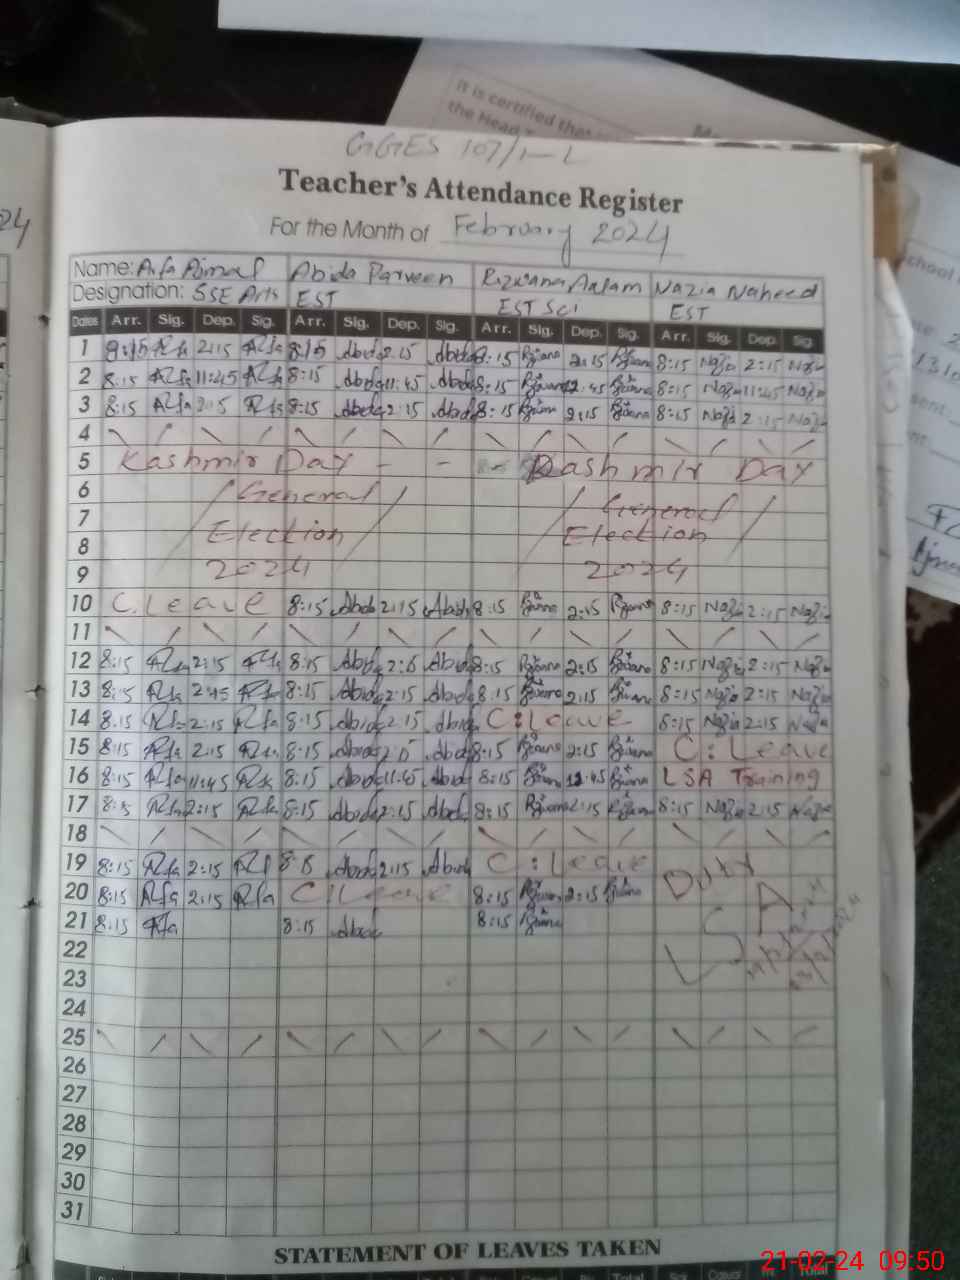 It is certified that
the Head
24
GGES 107/1-L
Teacher's Attendance Register
For the Month of February 2024
Name: Arfa Ajmal Abida Parveen Rizwana Aslam Nazia Naheed
Designation: SSE Arts EST EST Sci EST
Dates Arr. Sig. Dep. Sig. Arr. Sig. Dep. Sig. Arr. Sig. Dep. Sig. Arr. Sig. Dep. Sig.
1 8:15 Arfa 2:15 Arfa 8:15 Abida 2:15 Abida 8:15 Rizwana 2:15 Rizwana 8:15 Nazia 2:15 Nazia
2 8:15 Arfa 11:45 Arfa 8:15 Abida 11:45 Abida 8:15 Rizwana 12:45 Rizwana 8:15 Nazia 11:45 Nazia
3 8:15 Arfa 2:15 Arfa 8:15 Abida 2:15 Abida 8:15 Rizwana 2:15 Rizwana 8:15 Nazia 2:15 Nazia
4
5 Kashmir Day - - Kashmir Day
6 General General
7
8 Election Election
9 2024 2024
10 C. Leave 8:15 Abida 2:15 Abida 8:15 Rizwana 2:15 Rizwana 8:15 Nazia 2:15 Nazia
11
12 8:15 Arfa 2:15 Arfa 8:15 Abida 2:15 Abida 8:15 Rizwana 2:15 Rizwana 8:15 Nazia 2:15 Nazia
13 8:15 Arfa 2:15 Arfa 8:15 Abida 2:15 Abida 8:15 Rizwana 2:15 Rizwana 8:15 Nazia 2:15 Nazia
14 8:15 Arfa 2:15 Arfa 8:15 Abida 2:15 Abida C:Leave 8:15 Nazia 2:15 Nazia
15 8:15 Arfa 2:15 Arfa 8:15 Abida 2:15 Abida 8:15 Rizwana 2:15 Rizwana C:Leave
16 8:15 Arfa 11:45 Arfa 8:15 Abida 11:45 Abida 8:15 Rizwana 12:45 Rizwana LSA Training
17 8:15 Arfa 2:15 Arfa 8:15 Abida 2:15 Abida 8:15 Rizwana 2:15 Rizwana 8:15 Nazia 2:15 Nazia
18
19 8:15 Arfa 2:15 Arfa 8:15 Abida 2:15 Abida C:Leave Duty
20 8:15 Arfa 2:15 Arfa C:Leave 8:15 Rizwana 2:15 Rizwana
21 8:15 Arfa 8:15 Abida 8:15 Rizwana LSA
22
23
24
25
26
27
28
29
30
31
STATEMENT OF LEAVES TAKEN
21-02-24 09:50